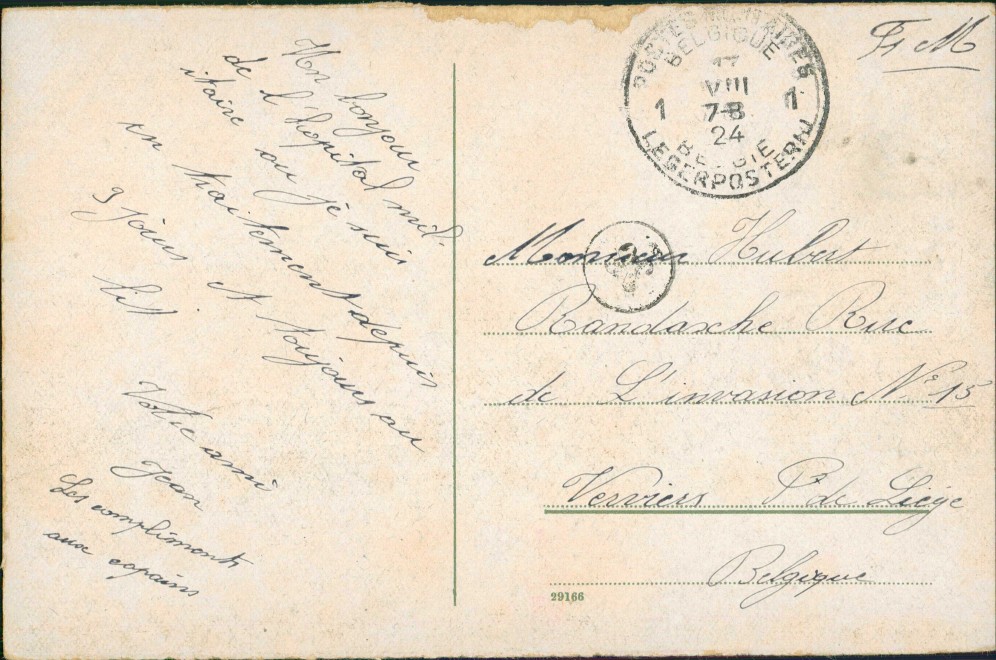 Un bonjour
de l'hopital mil-
itaire ou je suis
en traitement depuis
3 jours et toujours au
lit
Votre ami
Jean
Les compliments
aux copains
POSTES MILITAIRES
BELGIQUE
VIII
1 7-8 1
24
BELGIE
LEGERPOSTERIJ
Fr M
Monsieur Hubert
Randasche Rue
de L'invasion N° 15
Verviers P. de Liége
Belgique
29166